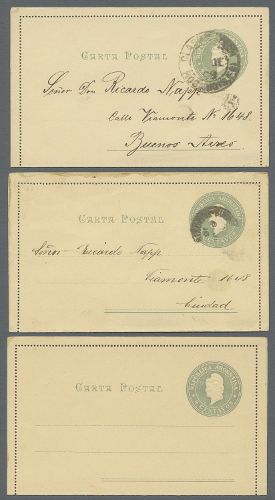 CARTA POSTAL
Señor Don Ricardo Napp
Calle Viamonte Nº 1648
Buenos Aires
CARTA POSTAL
Señor Ricardo Napp
Viamonte 1648
Ciudad
CARTA POSTAL
REPUBLICA ARGENTINA
CENTAVOS